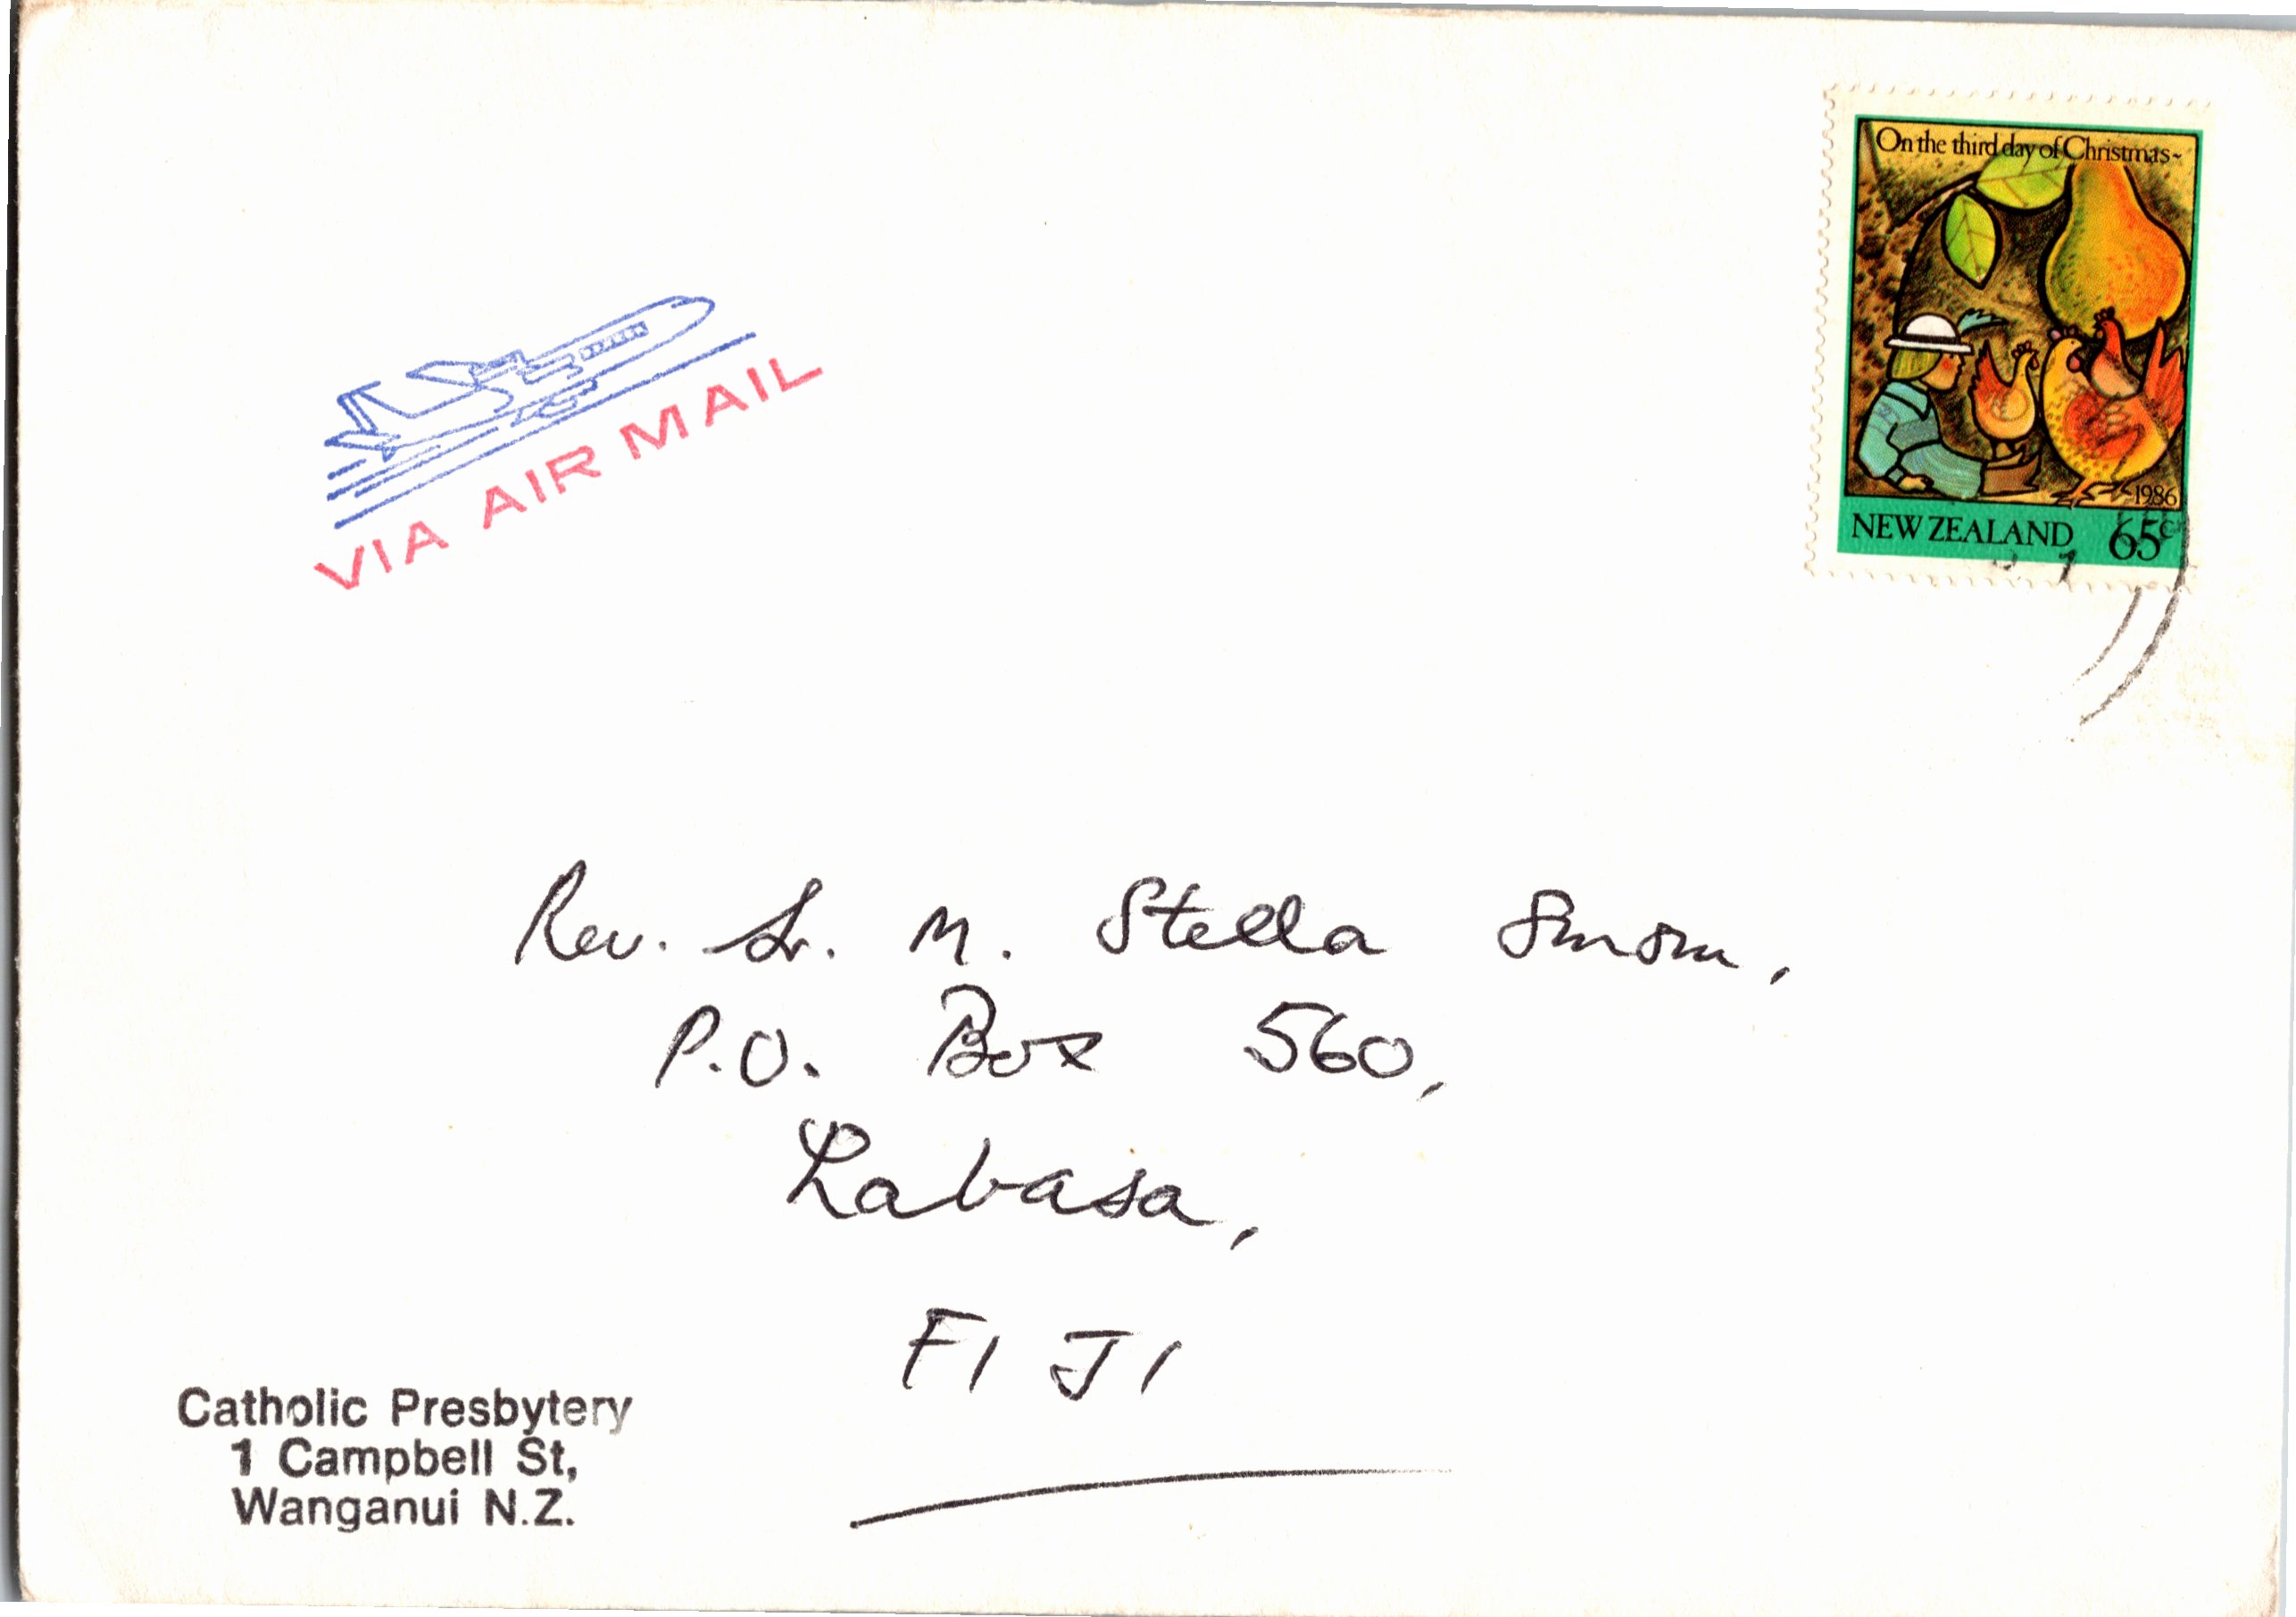 On the third day of Christmas~
1986
NEW ZEALAND 65c
VIA AIR MAIL
Rev. Sr. M. Stella
P.O. Box 560,
Labasa,
FIJI
Catholic Presbytery
1 Campbell St,
Wanganui N.Z.